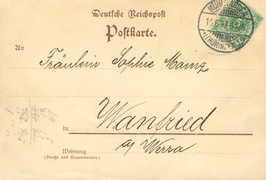 Deutsche Reichspost
Postkarte.
An
Fräulein Sophie Mainz
in Wanfried
a/ Werra
Wohnung
(Straße und Hausnummer)